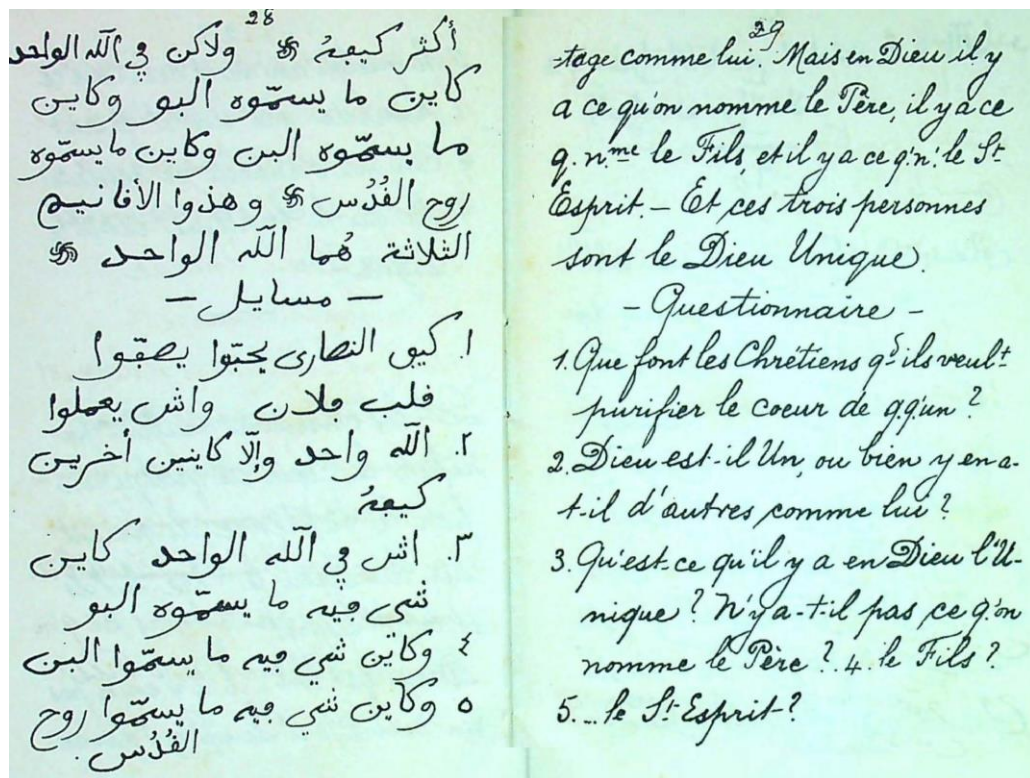 28
أكثر كيفهُ ֍ ولاكن في الله الواحد
كاين ما يسمّوه البو وكاين
ما يسمّوه البن وكاين ما يسمّوه
روح القُدُس ֍ وهذوا الأقانيم
الثلاثة هُما الله الواحد ֍
— مسايل —
١. كيف النصارى يحبّوا يصفّوا
قلب فلان واش يعملوا
٢. الله واحد وإلّا كاينين أخرين
كيفهُ
٣. اش في الله الواحد كاين
شي فيه ما يسمّوه البو
٤ وكاين شي فيه ما يسمّوا البن
٥ وكاين شي فيه ما يسمّوا روح
القُدُس.
29
-tage comme lui. Mais en Dieu il y
a ce qu'on nomme le Père, il y a ce
q. n.me le Fils, et il y a ce q'n'. le St
Esprit. — Et ces trois personnes
sont le Dieu Unique.
— Questionnaire —
1. Que font les Chrétiens qd ils veult
purifier le coeur de qq'un ?
2. Dieu est-il Un, ou bien y en a-
t-il d'autres comme lui ?
3. Qu'est-ce qu'il y a en Dieu l'U-
nique ? N'y a-t-il pas ce q'on
nomme le Père ? 4. le Fils ?
5. ... le St Esprit ?